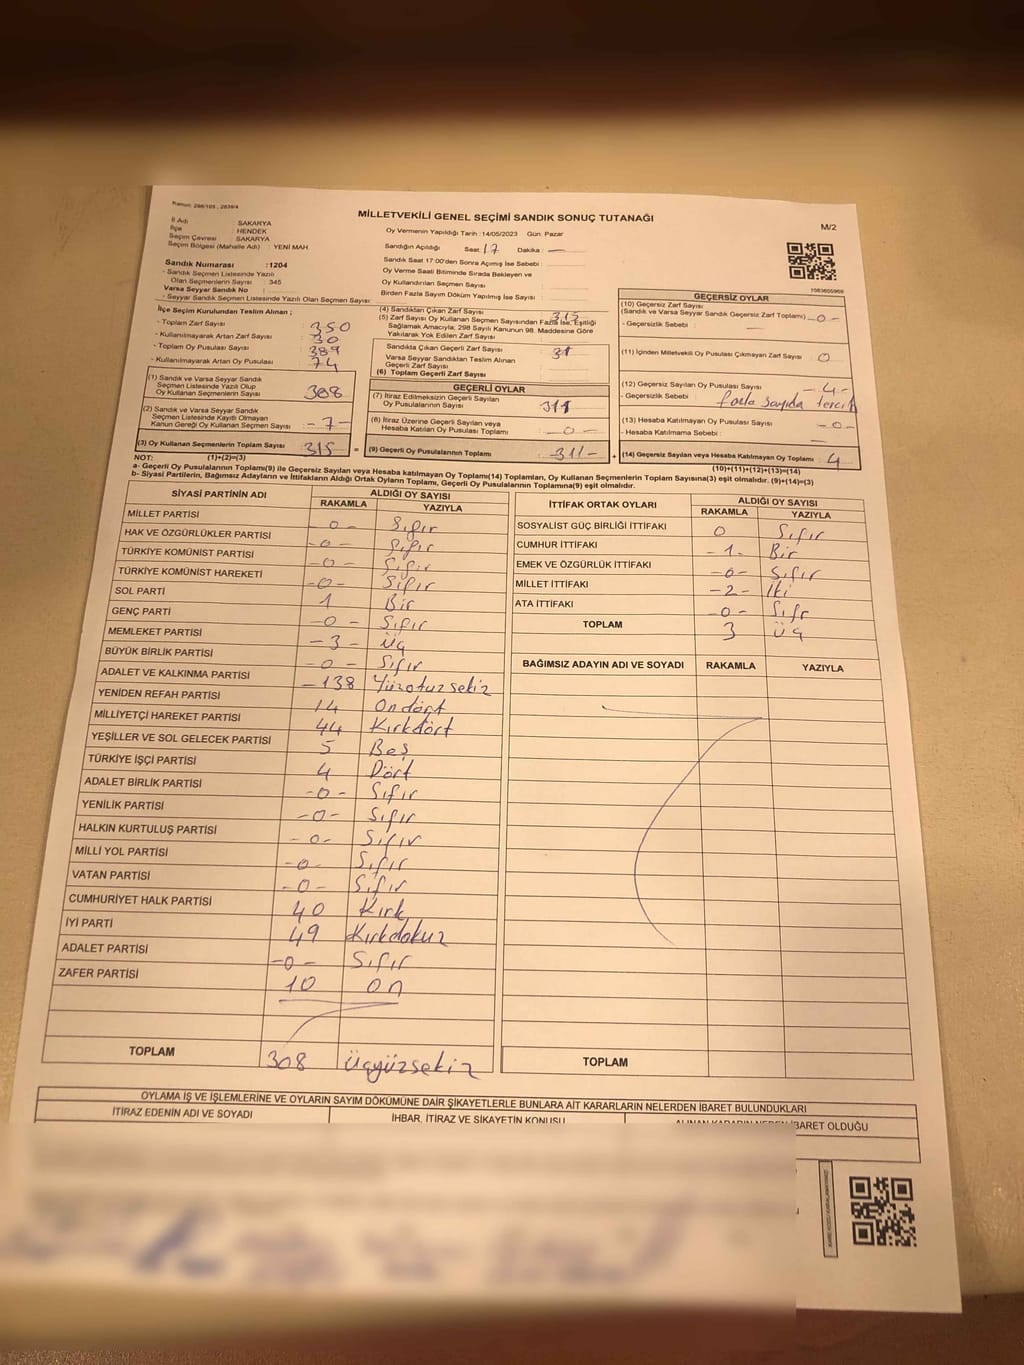 Kanun: 298/105, 2839/4
MİLLETVEKİLİ GENEL SEÇİMİ SANDIK SONUÇ TUTANAĞI
M/2
İl Adı : SAKARYA
İlçe : HENDEK
Seçim Çevresi : SAKARYA
Seçim Bölgesi (Mahalle Adı) : YENİ MAH.
Sandık Numarası :1204
- Sandık Seçmen Listesinde Yazılı
Olan Seçmenlerin Sayısı : 345
Varsa Seyyar Sandık No :
- Seyyar Sandık Seçmen Listesinde Yazılı Olan Seçmen Sayısı:
Oy Vermenin Yapıldığı Tarih : 14/05/2023 Gün: Pazar
Sandığın Açıldığı Saat : 17 Dakika : —
Sandık Saat 17:00'den Sonra Açımış İse Sebebi :
Oy Verme Saati Bitiminde Sırada Bekleyen ve
Oy Kullandırılan Seçmen Sayısı :
Birden Fazla Sayım Döküm Yapılmış İse Sayısı :
1083605969
İlçe Seçim Kurulundan Teslim Alınan ;
- Toplam Zarf Sayısı : 350
- Kullanılmayarak Artan Zarf Sayısı : 30
- Toplam Oy Pusulası Sayısı : 389
- Kullanılmayarak Artan Oy Pusulası : 74
(1) Sandık ve Varsa Seyyar Sandık
Seçmen Listesinde Yazılı Olup
Oy Kullanan Seçmenlerin Sayısı : 308
(2) Sandık ve Varsa Seyyar Sandık
Seçmen Listesinde Kayıtlı Olmayan
Kanun Gereği Oy Kullanan Seçmen Sayısı : - 7 -
(3) Oy Kullanan Seçmenlerin Toplam Sayısı : 315
(4) Sandıktan Çıkan Zarf Sayısı : 315
(5) Zarf Sayısı Oy Kullanan Seçmen Sayısından Fazla İse, Eşitliği
Sağlamak Amacıyla; 298 Sayılı Kanunun 98. Maddesine Göre
Yakılarak Yok Edilen Zarf Sayısı :
Sandıkta Çıkan Geçerli Zarf Sayısı :
Varsa Seyyar Sandıktan Teslim Alınan
Geçerli Zarf Sayısı :
(6) Toplam Geçerli Zarf Sayısı :
GEÇERLİ OYLAR
(7) İtiraz Edilmeksizin Geçerli Sayılan
Oy Pusulalarının Sayısı : 311
(8) İtiraz Üzerine Geçerli Sayılan veya
Hesaba Katılan Oy Pusulası Toplamı : -0-
= (9) Geçerli Oy Pusulalarının Toplamı : -311-
GEÇERSİZ OYLAR
(10) Geçersiz Zarf Sayısı
(Sandık ve Varsa Seyyar Sandık Geçersiz Zarf Toplamı) : -0-
- Geçersizlik Sebebi : —
(11) İçinden Milletvekili Oy Pusulası Çıkmayan Zarf Sayısı : 0
(12) Geçersiz Sayılan Oy Pusulası Sayısı : -4-
- Geçersizlik Sebebi : fazla sayıda tercih
(13) Hesaba Katılmayan Oy Pusulası Sayısı : -0-
- Hesaba Katılmama Sebebi : —
+ (14) Geçersiz Sayılan veya Hesaba Katılmayan Oy Toplamı : 4
NOT: (1)+(2)=(3)
(10)+(11)+(12)+(13)=(14)
a- Geçerli Oy Pusulalarının Toplamı(9) ile Geçersiz Sayılan veya Hesaba katılmayan Oy Toplamı(14) Toplamları, Oy Kullanan Seçmenlerin Toplam Sayısına(3) eşit olmalıdır. (9)+(14)=(3)
b- Siyasi Partilerin, Bağımsız Adayların ve İttifakların Aldığı Ortak Oyların Toplamı, Geçerli Oy Pusulalarının Toplamına(9) eşit olmalıdır.
SİYASİ PARTİNİN ADI ALDIĞI OY SAYISI
RAKAMLA YAZIYLA
MİLLET PARTİSİ -0- Sıfır
HAK VE ÖZGÜRLÜKLER PARTİSİ -0- Sıfır
TÜRKİYE KOMÜNİST PARTİSİ -0- Sıfır
TÜRKİYE KOMÜNİST HAREKETİ -0- Sıfır
SOL PARTİ 1 Bir
GENÇ PARTİ -0- Sıfır
MEMLEKET PARTİSİ -3- Üç
BÜYÜK BİRLİK PARTİSİ -0- Sıfır
ADALET VE KALKINMA PARTİSİ -138 Yüzotuzsekiz
YENİDEN REFAH PARTİSİ 14 Ondört
MİLLİYETÇİ HAREKET PARTİSİ 44 Kırkdört
YEŞİLLER VE SOL GELECEK PARTİSİ 5 Beş
TÜRKİYE İŞÇİ PARTİSİ 4 Dört
ADALET BİRLİK PARTİSİ -0- Sıfır
YENİLİK PARTİSİ -0- Sıfır
HALKIN KURTULUŞ PARTİSİ -0- Sıfır
MİLLİ YOL PARTİSİ -0- Sıfır
VATAN PARTİSİ -0- Sıfır
CUMHURİYET HALK PARTİSİ 40 Kırk
İYİ PARTİ 49 Kırkdokuz
ADALET PARTİSİ -0- Sıfır
ZAFER PARTİSİ 10 on
TOPLAM 308 Üçyüzsekiz
İTTİFAK ORTAK OYLARI ALDIĞI OY SAYISI
RAKAMLA YAZIYLA
SOSYALİST GÜÇ BİRLİĞİ İTTİFAKI 0 Sıfır
CUMHUR İTTİFAKI -1- Bir
EMEK VE ÖZGÜRLÜK İTTİFAKI -0- Sıfır
MİLLET İTTİFAKI -2- İki
ATA İTTİFAKI -0- Sıfr
TOPLAM 3 Üç
BAĞIMSIZ ADAYIN ADI VE SOYADI RAKAMLA YAZIYLA
TOPLAM
OYLAMA İŞ VE İŞLEMLERİNE VE OYLARIN SAYIM DÖKÜMÜNE DAİR ŞİKAYETLERLE BUNLARA AİT KARARLARIN NELERDEN İBARET BULUNDUKLARI
İTİRAZ EDENİN ADI VE SOYADI İHBAR, İTİRAZ VE ŞİKAYETİN KONUSU ALINAN KARARIN NEDEN İBARET OLDUĞU